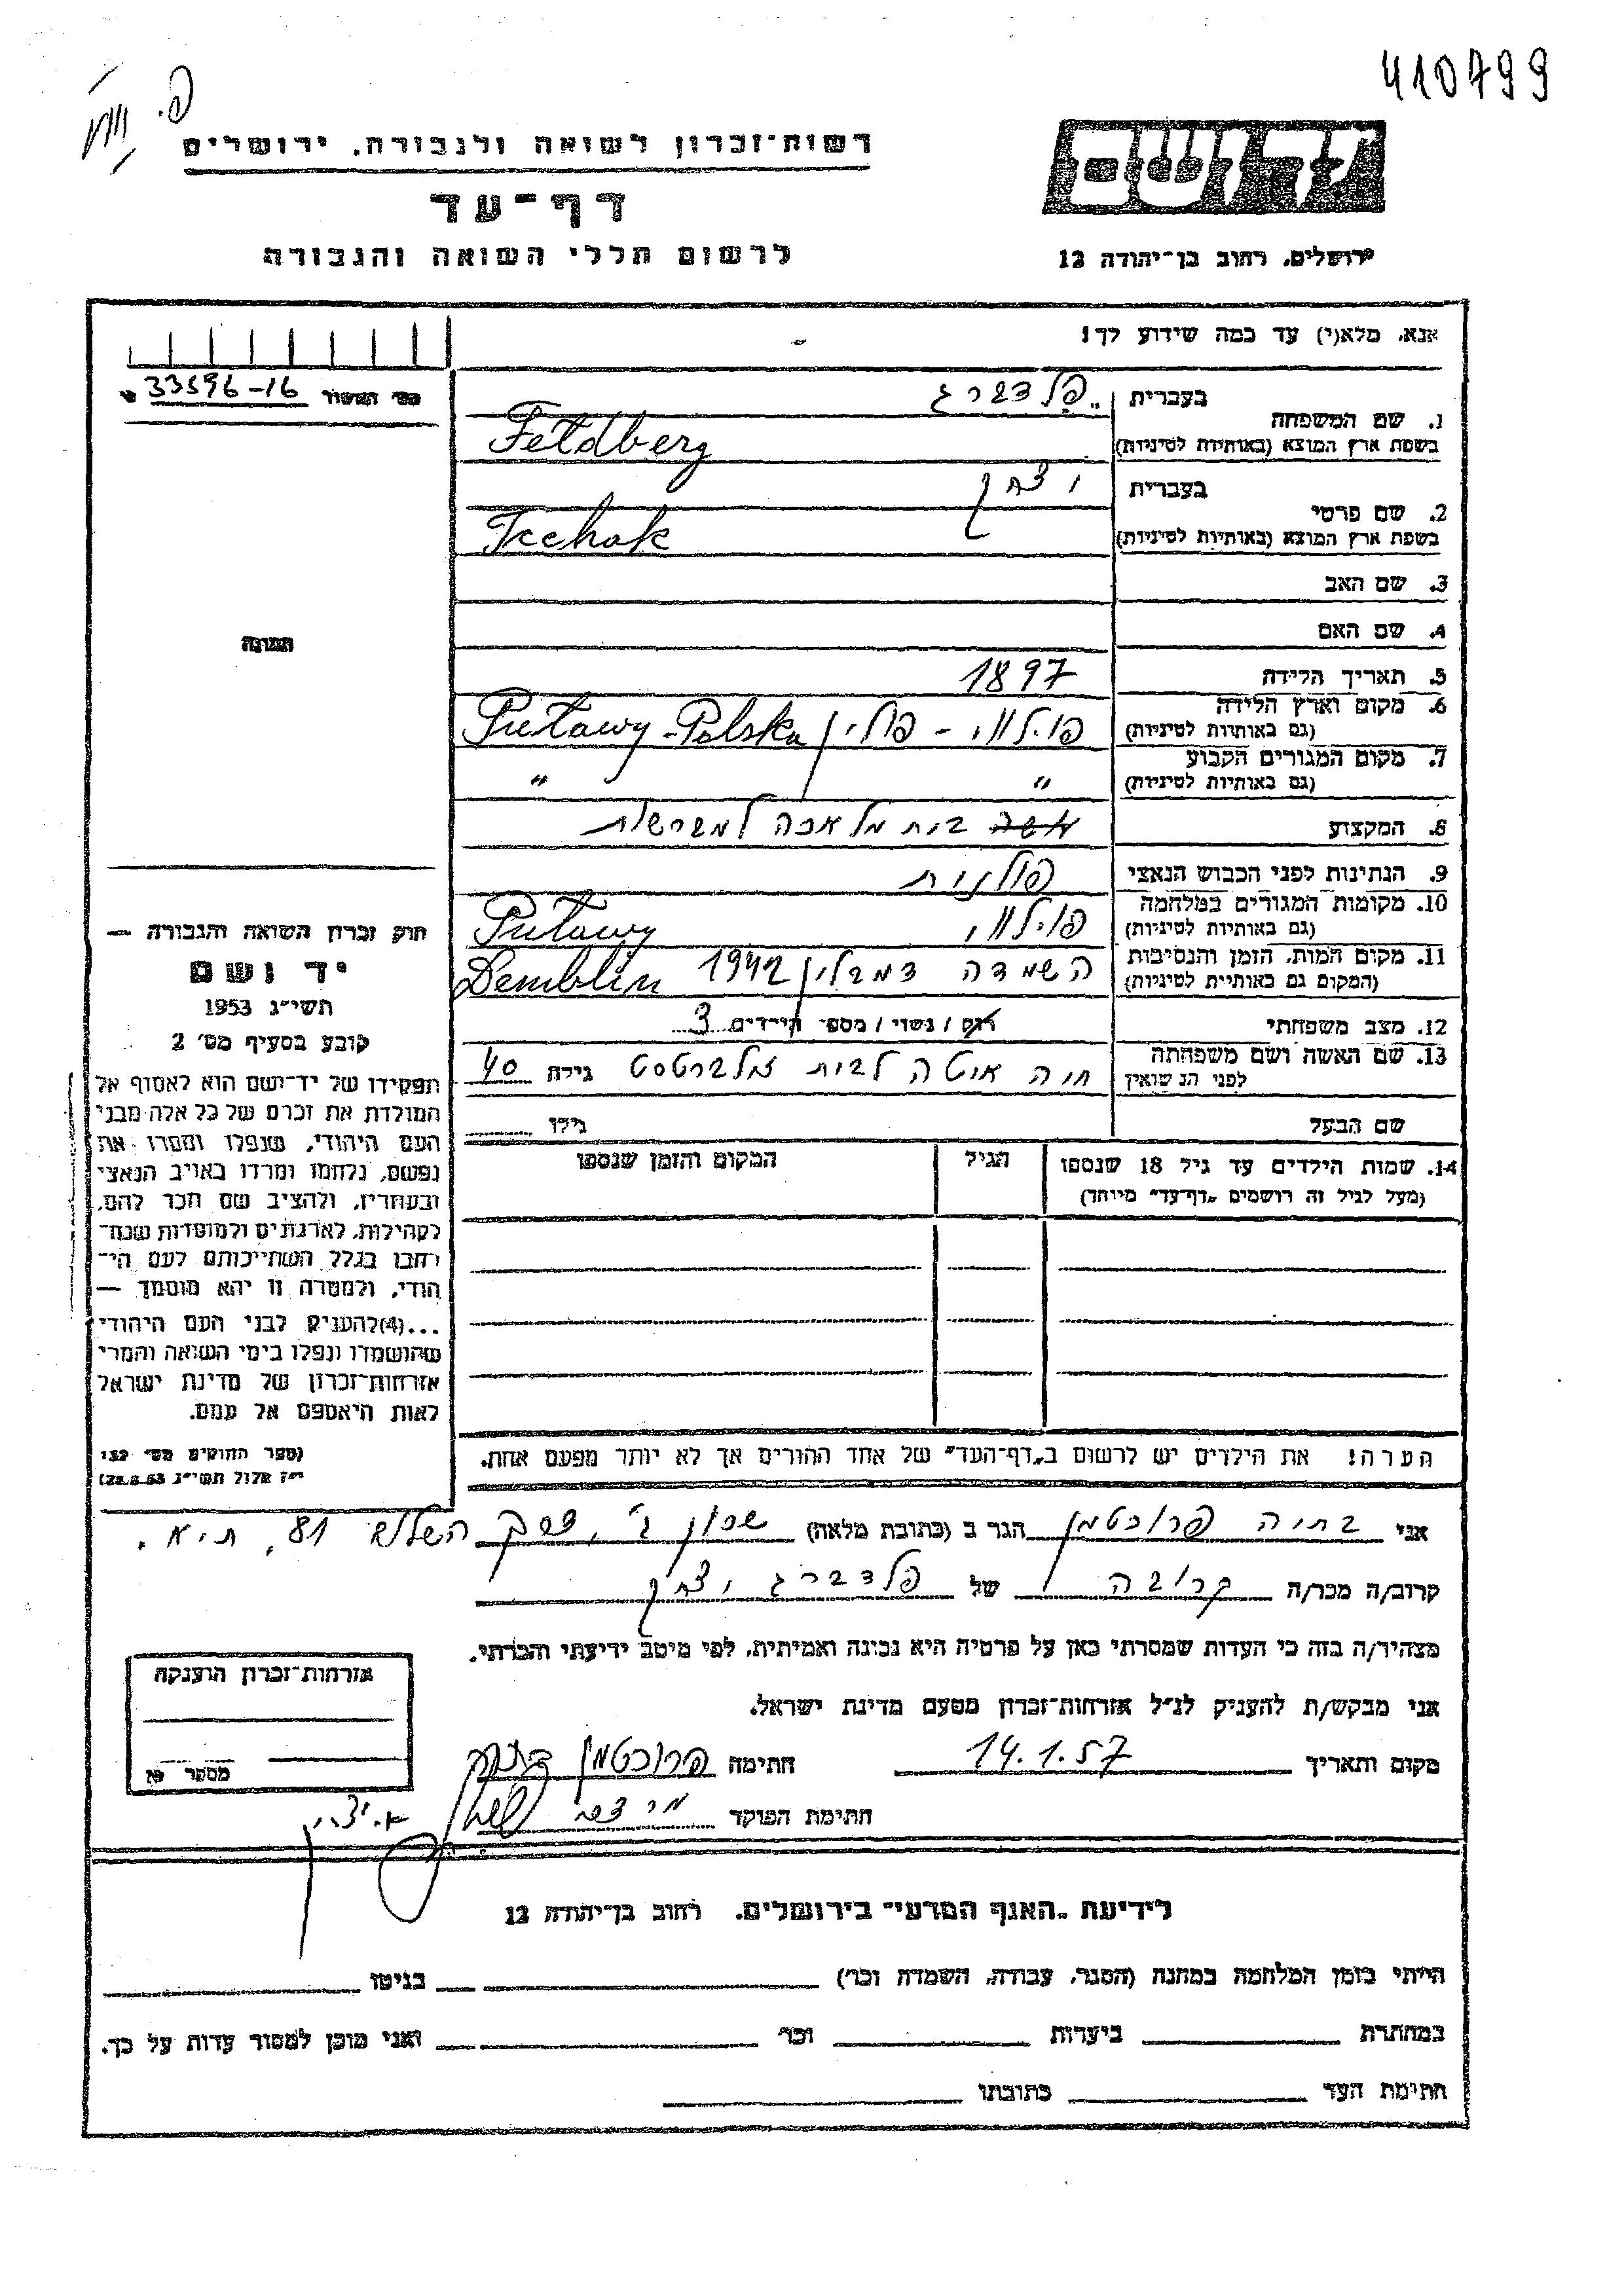 410799
רשות־זכרון לשואה ולגבורה, ירושלים
דף־עד
לרשום חללי השואה והגבורה
יד ושם
ירושלים, רחוב בן־יהודה 12
אנא, מלא(י) עד כמה שידוע לך!
מס׳ האשור 33596-16
1. שם המשפחה
בעברית פלדברג
בשפת ארץ המוצא (באותיות לטיניות) Feldberg
2. שם פרטי
בעברית יצחק
בשפת ארץ המוצא (באותיות לטיניות) Icchak
3. שם האב
4. שם האם
תמונה
5. תאריך הלידה 1897
6. מקום וארץ הלידה
(גם באותיות לטיניות) פולווי - פולין Puławy - Polska
7. מקום המגורים הקבוע
(גם באותיות לטיניות) " "
8. המקצוע בית מלאכה למברשות
9. הנתינות לפני הכבוש הנאצי פולנית
10. מקומות המגורים במלחמה
(גם באותיות לטיניות) פולווי Puławy
11. מקום המות, הזמן והנסיבות
(המקום גם באותיות לטיניות) השמדה דמבלין 1942 Demblin
12. מצב משפחתי רווק / נשוי / מספר הילדים 3
13. שם האשה ושם משפחתה
לפני הנשואין חיה איטה לבית גילה 40
שם הבעל גילו
14. שמות הילדים עד גיל 18 שנספו
(מעל לגיל זה רושמים "דף־עד" מיוחד)
הגיל
המקום והזמן שנספו
הערה! את הילדים יש לרשום ב"דף־העד" של אחד ההורים אך לא יותר מפעם אחת.
חוק זכרון השואה והגבורה —
יד ושם
תשי״ג 1953
קובע בסעיף מס׳ 2
תפקידו של יד־ושם הוא לאסוף אל
המולדת את זכרם של כל אלה מבני
העם היהודי, שנפלו ומסרו את
נפשם, נלחמו ומרדו באויב הנאצי
ובעוזריו, ולהציב שם וזכר להם,
לקהילות, לארגונים ולמוסדות שנח־
רבו בגלל השתייכותם לעם הי־
הודי, ולמטרה זו יהא מוסמך —
...(4)להעניק לבני העם היהודי
שהושמדו ונפלו בימי השואה והמרי
אזרחות־זכרון של מדינת ישראל
לאות היאספם אל עמם.
(ספר החוקים מס׳ 132
י״ז אלול תשי״ג 28.8.53)
אני בתיה פרוכטמן הגר ב (כתובת מלאה) שכון ג׳, דרך השלום 81, ת״א.
קרוב/ה מכר/ה קרובה של פלדברג יצחק
מצהיר/ה בזה כי העדות שמסרתי כאן על פרטיה היא נכונה ואמיתית, לפי מיטב ידיעתי והכרתי.
אני מבקש/ת להעניק לנ״ל אזרחות־זכרון מטעם מדינת ישראל.
מקום ותאריך 14.1.57 חתימה פרוכטמן בתיה
חתימת הפוקד
אזרחות־זכרון הוענקה
מספר
לידיעת "האגף המדעי" בירושלים, רחוב בן־יהודה 12
הייתי בזמן המלחמה במחנה (הסגר, עבודה, השמדה וכו׳) בגיטו
במחתרת ביערות וכו׳ ואני מוכן למסור עדות על כך.
חתימת העד כתובתו